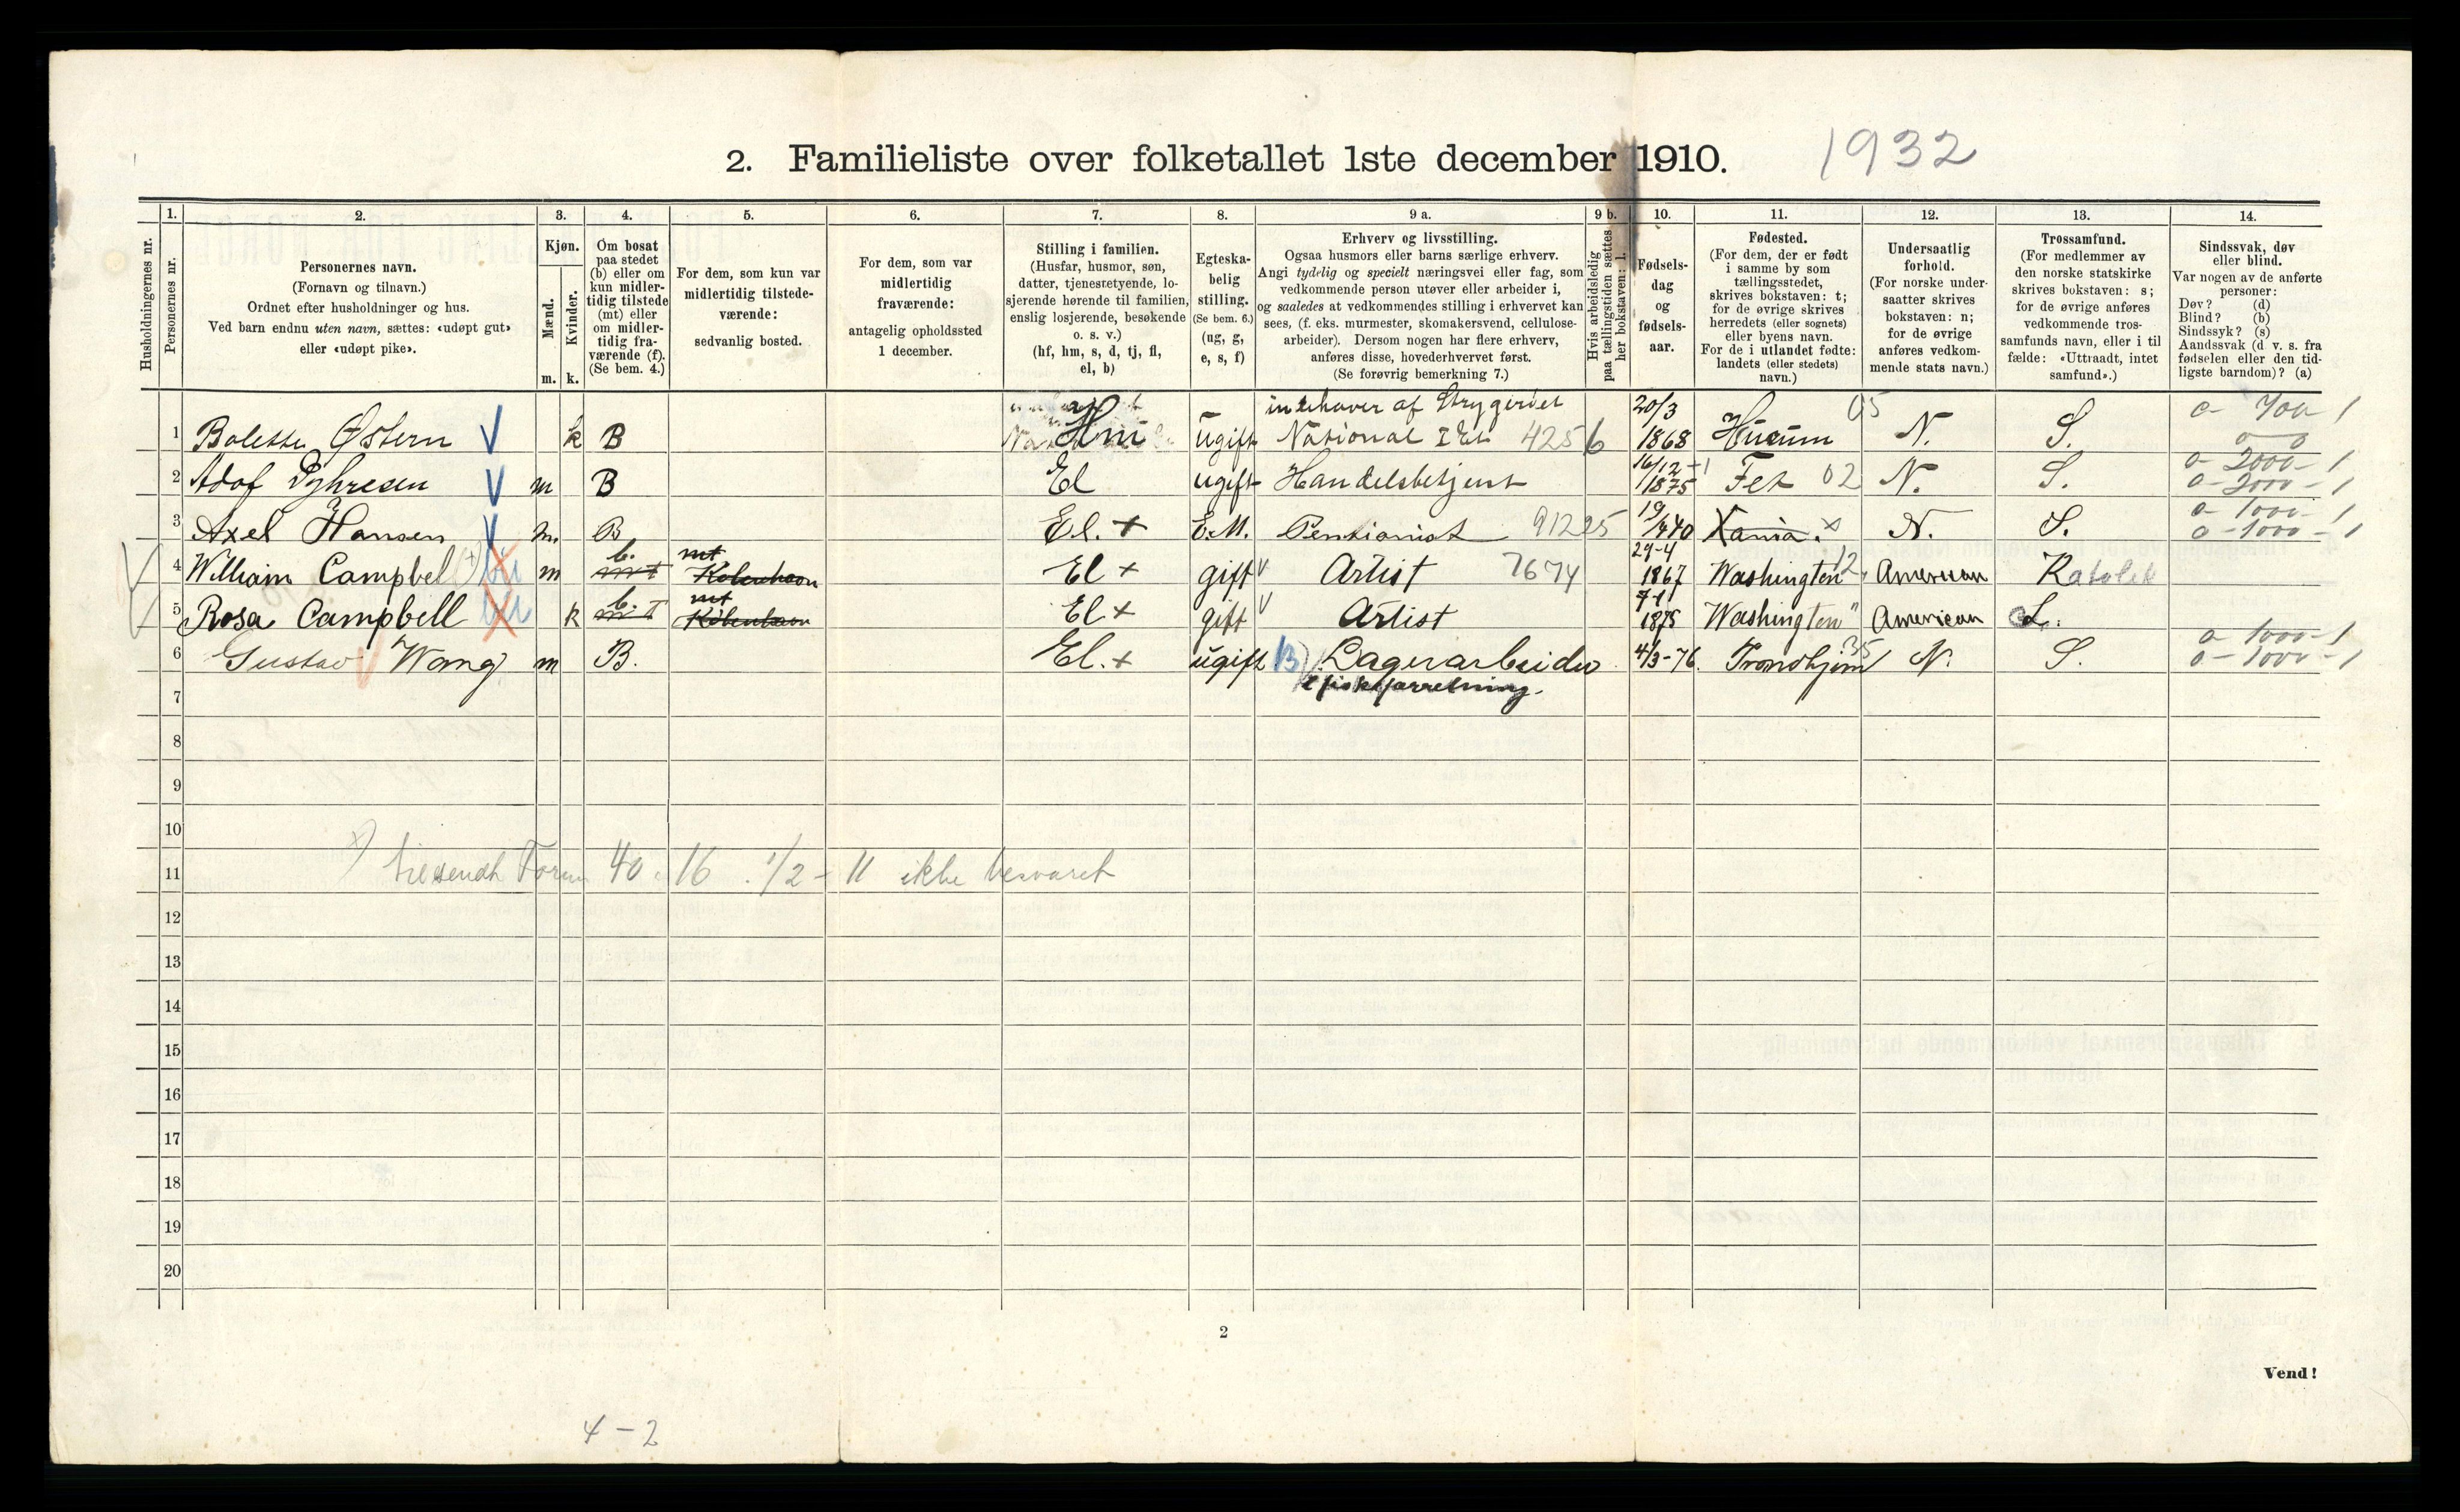 2. Familieliste over folketallet 1ste december 1910.
1932
Husholdningernes nr.
1.
Personernes nr.
2.
Personernes navn.
(Fornavn og tilnavn.)
Ordnet efter husholdninger og hus.
Ved barn endnu uten navn, sættes: «udøpt gut»
eller «udøpt pike».
3.
Kjøn.
Mænd.
Kvinder.
m. k.
4.
Om bosat
paa stedet
(b) eller om
kun midler-
tidig tilstede
(mt) eller
om midler-
tidig fra-
værende (f).
(Se bem. 4.)
5.
For dem, som kun var
midlertidig tilstede-
værende:
sedvanlig bosted.
6.
For dem, som var
midlertidig
fraværende:
antagelig opholdssted
1 december.
7.
Stilling i familien.
(Husfar, husmor, søn,
datter, tjenestetyende, lo-
sjerende hørende til familien,
enslig losjerende, besøkende
o. s. v.)
(hf, hm, s, d, tj, fl,
el, b)
8.
Egteska-
belig
stilling.
(Se bem. 6.)
(ug, g,
e, s, f)
9 a.
Erhverv og livsstilling.
Ogsaa husmors eller barns særlige erhverv.
Angi tydelig og specielt næringsvei eller fag, som
vedkommende person utøver eller arbeider i,
og saaledes at vedkommendes stilling i erhvervet kan
sees, (f. eks. murmester, skomakersvend, cellulose-
arbeider). Dersom nogen har flere erhverv,
anføres disse, hovederhvervet først.
(Se forøvrig bemerkning 7.)
9 b.
Hvis arbeidsledig
paa tællingstiden sættes
her bokstaven: l.
10.
Fødsels-
dag
og
fødsels-
aar.
11.
Fødested.
(For dem, der er født
i samme by som
tællingsstedet,
skrives bokstaven: t;
for de øvrige skrives
herredets (eller sognets)
eller byens navn.
For de i utlandet fødte:
landets (eller stedets)
navn.)
12.
Undersaatlig
forhold.
(For norske under-
saatter skrives
bokstaven: n;
for de øvrige
anføres vedkom-
mende stats navn.)
13.
Trossamfund.
(For medlemmer av
den norske statskirke
skrives bokstaven: s;
for de øvrige anføres
vedkommende tros-
samfunds navn, eller i til-
fælde: «Uttraadt, intet
samfund».)
14.
Sindssvak, døv
eller blind.
Var nogen av de anførte
personer:
Døv? (d)
Blind? (b)
Sindssyk? (s)
Aandssvak (d. v. s. fra
fødselen eller den tid-
ligste barndom)? (a)
1 Bolette Østern k B Hm ugift indehaver af Strygeriet National 4256 20/3 1868 Hurum 05 N. S. 0 - 700 1
2 Adof Dyhresen m B El ugift Handelsbetjent 16/12 1875 Fet 02 N. S. 0 - 2000 - 1
0 - 2000 - 1
3 Axel Hansen m. B El. + E.M. Pentionist 91225 19/4 40 Xania. x N. S. 0 - 1000 - 1
0 - 1000 - 1
4 William Campbel m b. mt mt København El + gift Artist 7674 29-4 1867 Washington 12 American Katolik
5 Rosa Campbell k b. mt mt København El + gift Artist 7-1 1875 Washington " American L.
6 Gustav Wang m B. El. + ugift Lagerarbeider 4/3-76. Trondhjem 35 N. S. 0 - 1000 - 1
0 - 1000 - 1
i fiskeforretning.
7
8
9
10
11 x) tilsendt Form 40. 16. 1/2 - 11 ikke besvaret
12
13
14
15
16
17
18
19
20
2
Vend!
4 - 2